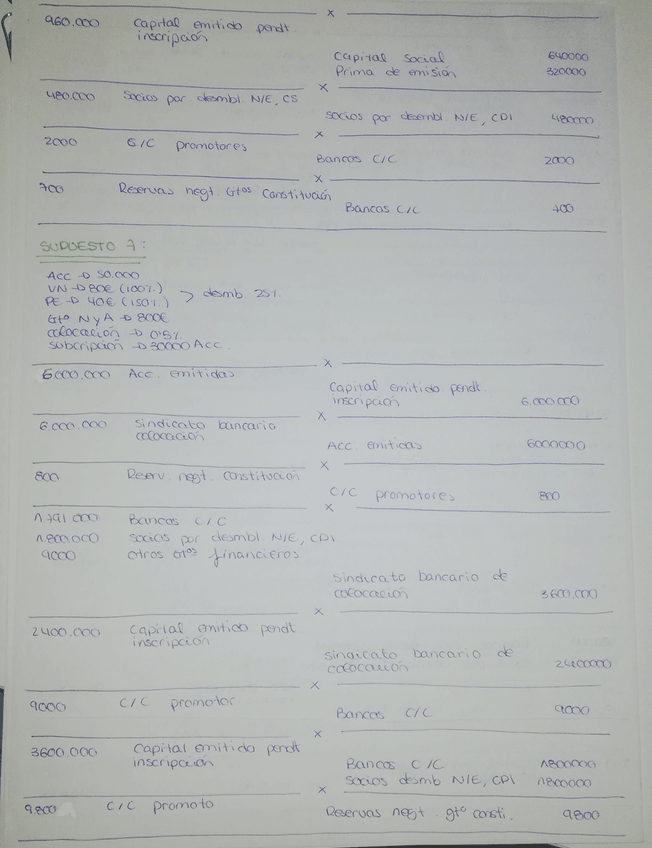 x
960.000 Capital emitido pendt.
inscripción
Capital Social 640000
Prima de emisión 320000
x
480.000 Socios por desmbl. N/E, CS
Socios por desembl. N/E, CPI 480000
x
2000 C/C promotores
Bancos C/C 2000
x
700 Reservas negt. Gtos Constitución
Bancos C/C 700
SUPUESTO 7:
ACC → 50.000
VN → 80€ (100%)
PE → 40€ (150%) > desmb. 25%
Gto N y A → 800€
colocación → 0'5%
subcripción → 30000 Acc.
x
6.000.000 Acc. emitidas
Capital emitido pendt.
inscripción 6.000.000
x
6.000.000 Sindicato bancario
colocación
Acc. emitidas 6000000
x
800 Reserv. negt. constitución
C/C promotores 800
x
1.791.000 Bancos C/C
1.800.000 Socios por desmbl. N/E, CPI
9000 otros Gtos financieros
Sindicato bancario de
colocación 3.600.000
x
2400.000 Capital emitido pendt
inscripción
Sindicato bancario de
colocación 2400000
x
9000 C/C promotor
Bancos C/C 9000
x
3600.000 Capital emitido pendt
inscripción
Bancos C/C 1800000
Socios desmb N/E, CPI 1800000
x
9.800 C/C promoto
Reservas negt. gto consti. 9800